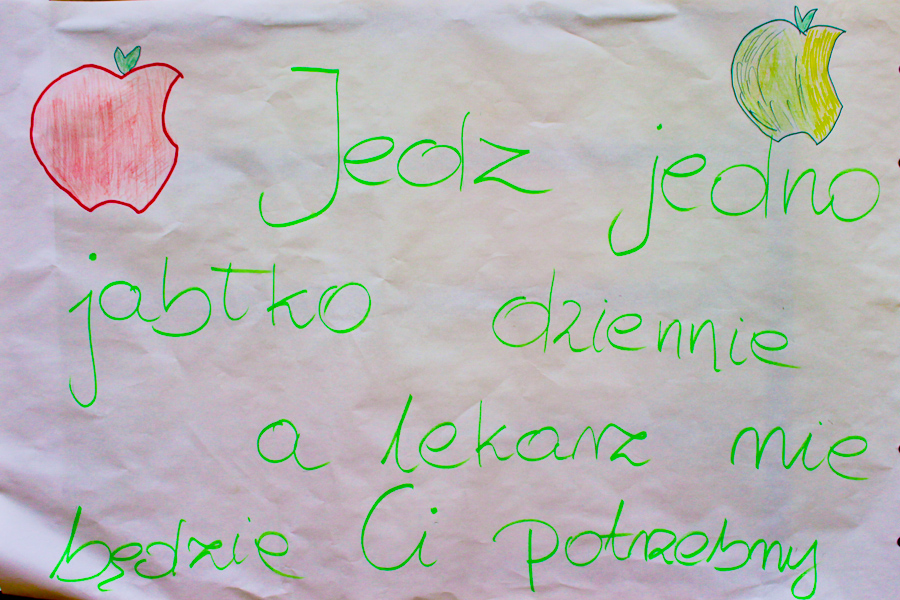 Jedz jedno
jabłko dziennie
a lekarz nie
będzie Ci potrzebny